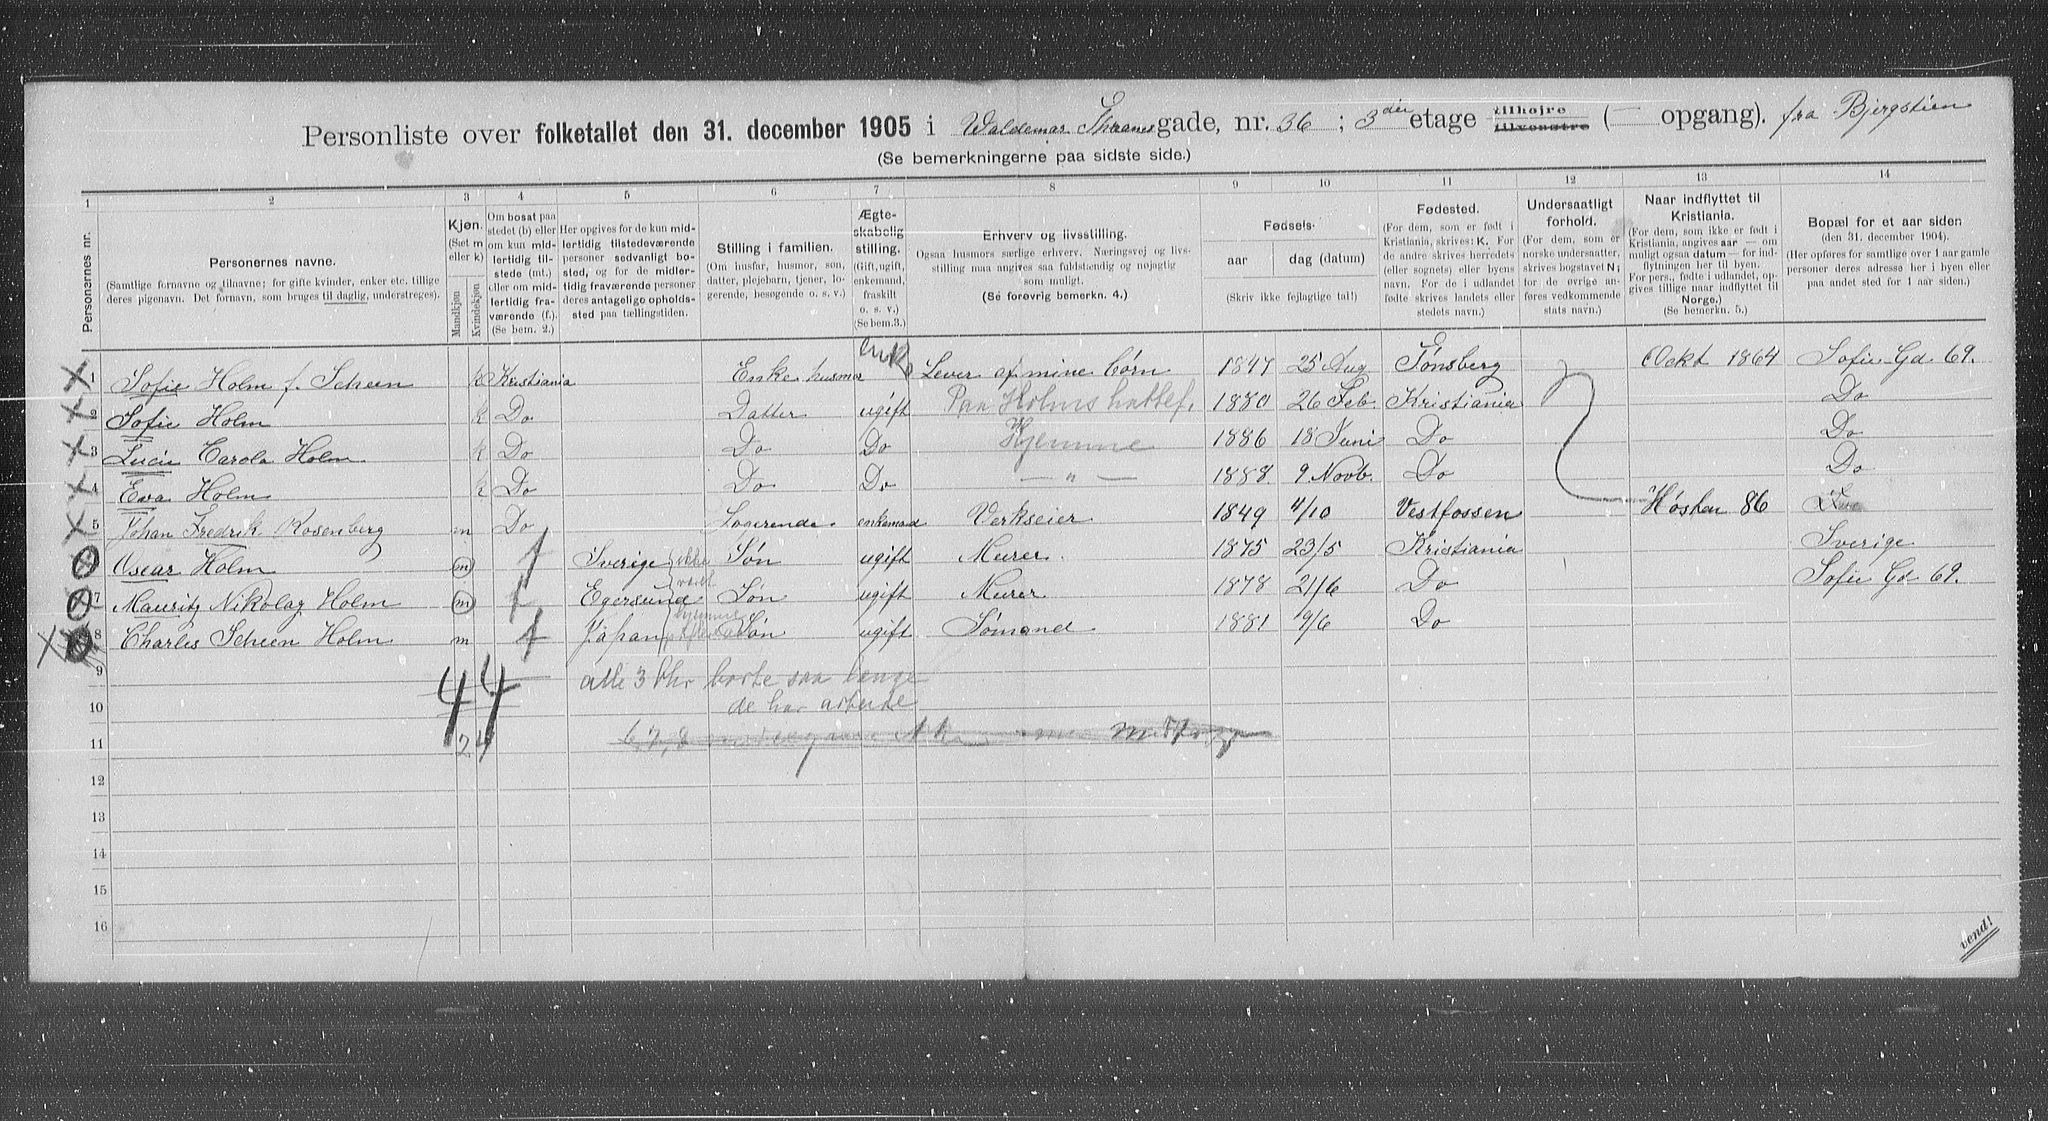 Personliste over folketallet den 31. december 1905 i Waldemar Thranes gade, nr. 36 ; 3die etage tilhøjre tilvenstre ( — opgang). fra Bjergstien
(Se bemerkningerne paa sidste side.)
1 2 3 4 5 6 7 8 9 10 11 12 13 14
Personernes nr.
Personernes navne.
(Samtlige fornavne og tilnavne; for gifte kvinder, enker etc. tillige deres pigenavn. Det fornavn, som bruges til daglig, understreges).
Kjøn.
(Sæt m eller k)
Mandkjøn
Kvindekjøn
Om bosat paa stedet (b) eller om kun midlertidig tilstede (mt.) eller om midlertidig fraværende (f.) (Se bem. 2.)
Her opgives for de kun midlertidig tilstedeværende personer sedvanligt bosted, og for de midlertidig fraværende personer deres antagelige opholdssted paa tællingstiden.
Stilling i familien.
(Om husfar, husmor, søn, datter, plejebarn, tjener, logerende, besøgende o. s. v.)
Ægteskabelig stilling.
(Gift, ugift, enkemand, fraskilt o. s. v.)
(Se bem.3.)
Erhverv og livsstilling.
Ogsaa husmors særlige erhverv. Næringsvej og livsstilling maa angives saa fuldstændig og nøjagtig som muligt.
(Se forøvrig bemerkn. 4.)
Fødsels-
aar dag (datum)
(Skriv ikke fejlagtige tal!)
Fødested.
(For dem, som er født i Kristiania, skrives: K. For de andre skrives herredets (eller sognets) eller byens navn. For de i udlandet fødte skrives landets eller stedets navn.)
Undersaatligt forhold.
(For dem, som er norske undersatter, skrives bogstavet N; for de øvrige anføres vedkommende stats navn.)
Naar indflyttet til Kristiania.
(For dem, som ikke er født i Kristiania, angives aar — om muligt ogsaa datum — for indflytningen her til byen. For pers., fødte i udlandet, opgives tillige naar indflyttet til Norge.)
(Se bemerkn. 5.)
Bopæl for et aar siden.
(den 31. december 1904.)
(Her opføres for samtlige over 1 aar gamle personer deres adresse her i byen eller paa andet sted for 1 aar siden.)
X 1 Sofie Holm f. Scheen k Kristiania Enke husmor enke Lever af mine børn 1847 25 Aug Tønsberg Ockt 1864 Sofie Gd 69.
X 2 Sofie Holm k Do Datter ugift Paa Holms hattef. 1880 26 Feb. Kristiania Do
X 3 Lucie Carola Holm k Do Do Do Hjemme 1886 18 Juni Do Do
X 4 Eva Holm k Do Do Do — " — 1888 9 Novb. Do Do
X 5 Johan Fredrik Rosenberg m Do Logerende enkemand Verkseier 1849 4/10 Vestfossen Høsten 86
Oscar Holm m f Sverige ikke Søn ugift Murer. 1875 23/5 Kristiania Sverige
7 Mauritz Nikolay Holm m f Egersund været Søn ugift Murer 1878 21/6 Do Sofie Gd 69.
X 8 Charles Scheen Holm m f Japan hjemme Søn ugift Sømand 1881 9/6 Do
9 alle 3 blir borte saa længe
10 de har arbeide
44
11 24 6 7, 8
12
13
14
15
16
vend!